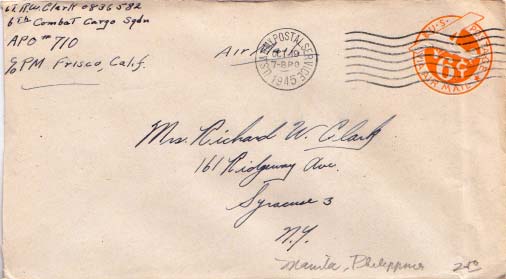 Lt. R.W. Clark 0836582
6th Combat Cargo Sqdn
APO # 710
c/o PM Frisco, Calif.
Air Mail
U.S. ARMY POSTAL SERVICE
OCT 19
7-8 PM
1945
U.S. POSTAGE
6¢
VIA AIR MAIL
Mrs. Richard W. Clark
161 Ridgeway Ave.
Syracuse 3
N.Y.
Manila, Philippines